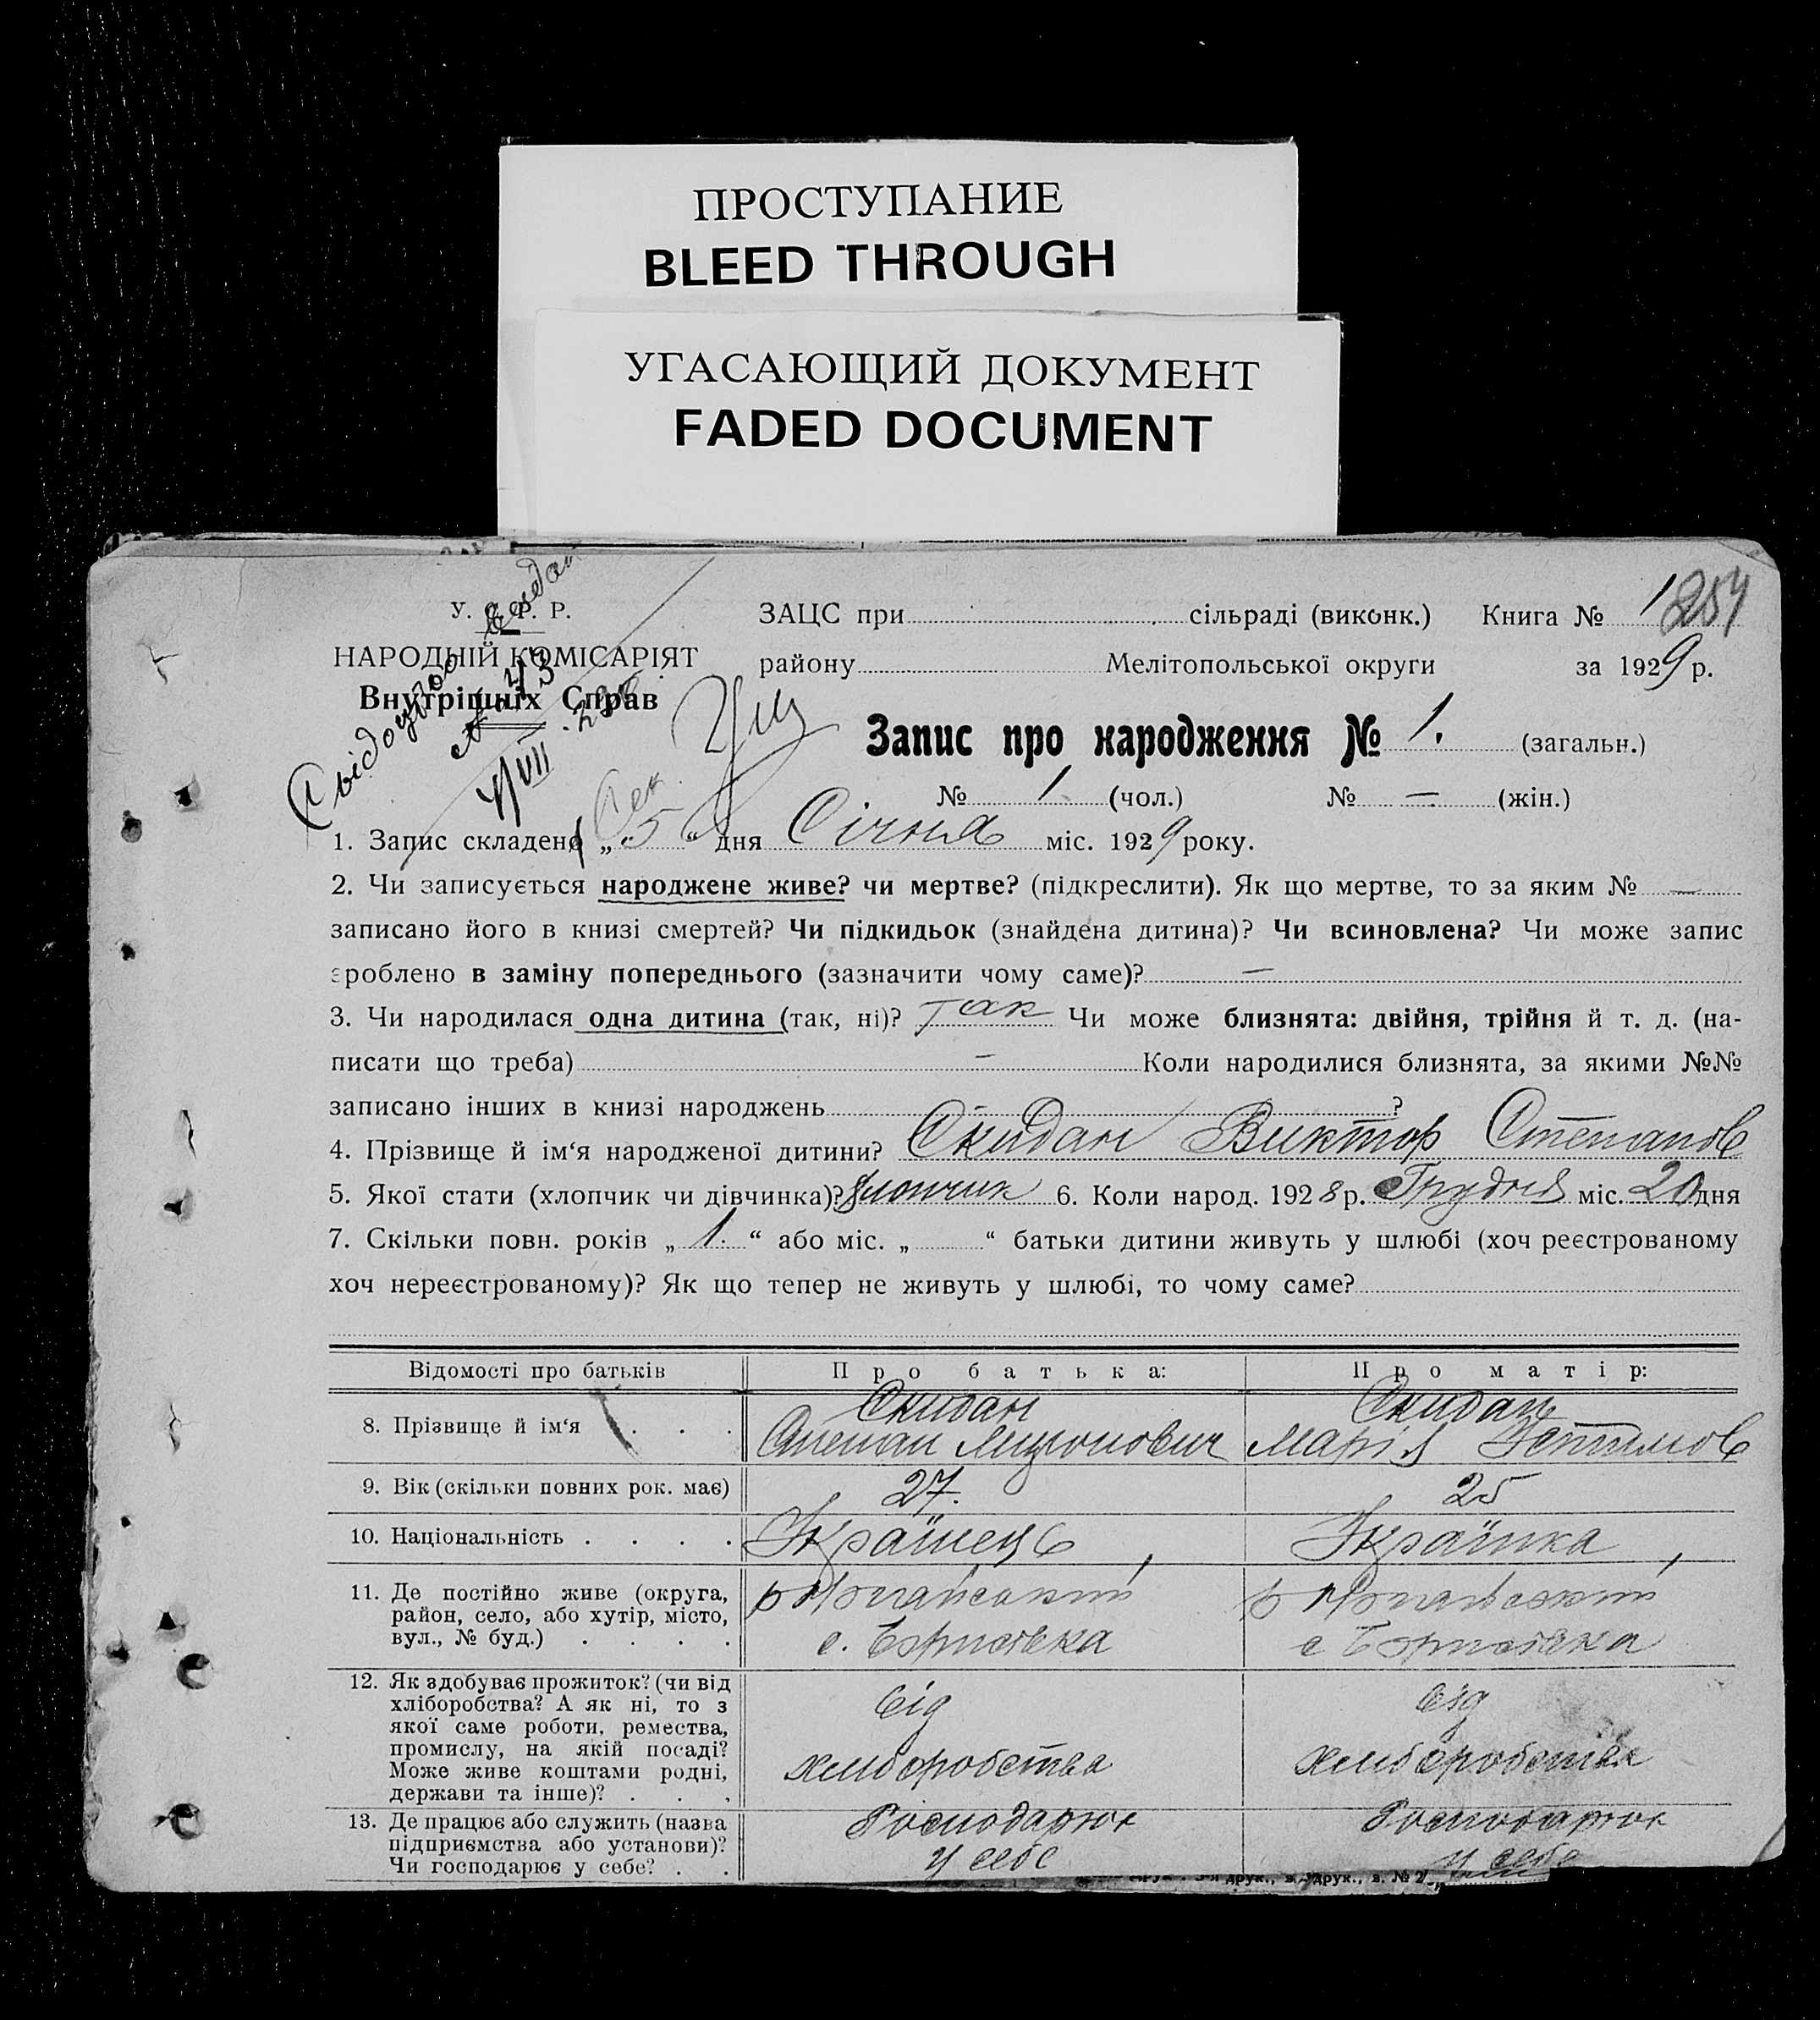 ПРОСТУПАНИЕ
BLEED THROUGH
УГАСАЮЩИЙ ДОКУМЕНТ
FADED DOCUMENT
У. С. Р. Р.
НАРОДНІЙ КОМІСАРІЯТ
Внутрішніх Справ
№ 43
4/VII
ЗАЦС при сільраді (виконк.) Книга № 1 254
району Мелітопольської округи за 1929 р.
Запис про народження № 1. (загальн.)
№ 1 (чол.) № — (жін.)
1. Запис складено „5“ дня Січня міс. 1929 року.
2. Чи записується народжене живе? чи мертве? (підкреслити). Як що мертве, то за яким № —
записано його в книзі смертей? Чи підкидьок (знайдена дитина)? Чи всиновлена? Чи може запис
зроблено в заміну попереднього (зазначити чому саме)? —
3. Чи народилася одна дитина (так, ні)? так Чи може близнята: двійня, трійня й т. д. (на-
писати що треба) — Коли народилися близнята, за якими №№
записано інших в книзі народжень — ?
4. Прізвище й ім‘я народженої дитини? Скидан Виктор Степанов
5. Якої стати (хлопчик чи дівчинка)? хлопчик 6. Коли народ. 1928 р. Грудня міс. 20 дня
7. Скільки повн. років „1.“ або міс. „ “ батьки дитини живуть у шлюбі (хоч реєстрованому
хоч нереєстрованому)? Як що тепер не живуть у шлюбі, то чому саме?
Відомості про батьків Про батька: Про матір:
8. Прізвище й ім‘я . . . Скидан Скидан
Степан Миронович Марія Устимов
9. Вік (скільки повних рок. має) 27. 25
10. Національність . . . . Українець, Українка,
11. Де постійно живе (округа,
район, село, або хутір, місто,
вул., № буд.) . . . .
с. Борисовка с Борисовка
12. Як здобуває прожиток? (чи від
хліборобства? А як ні, то з
якої саме роботи, ремества,
промислу, на якій посаді?
Може живе коштами родні,
держави та інше)? . . .
від від
хлиборобства хлиборобства
13. Де працює або служить (назва
підприємства або установи)?
Чи господарює у себе? . .
Господарює Господарює
у себе у себе